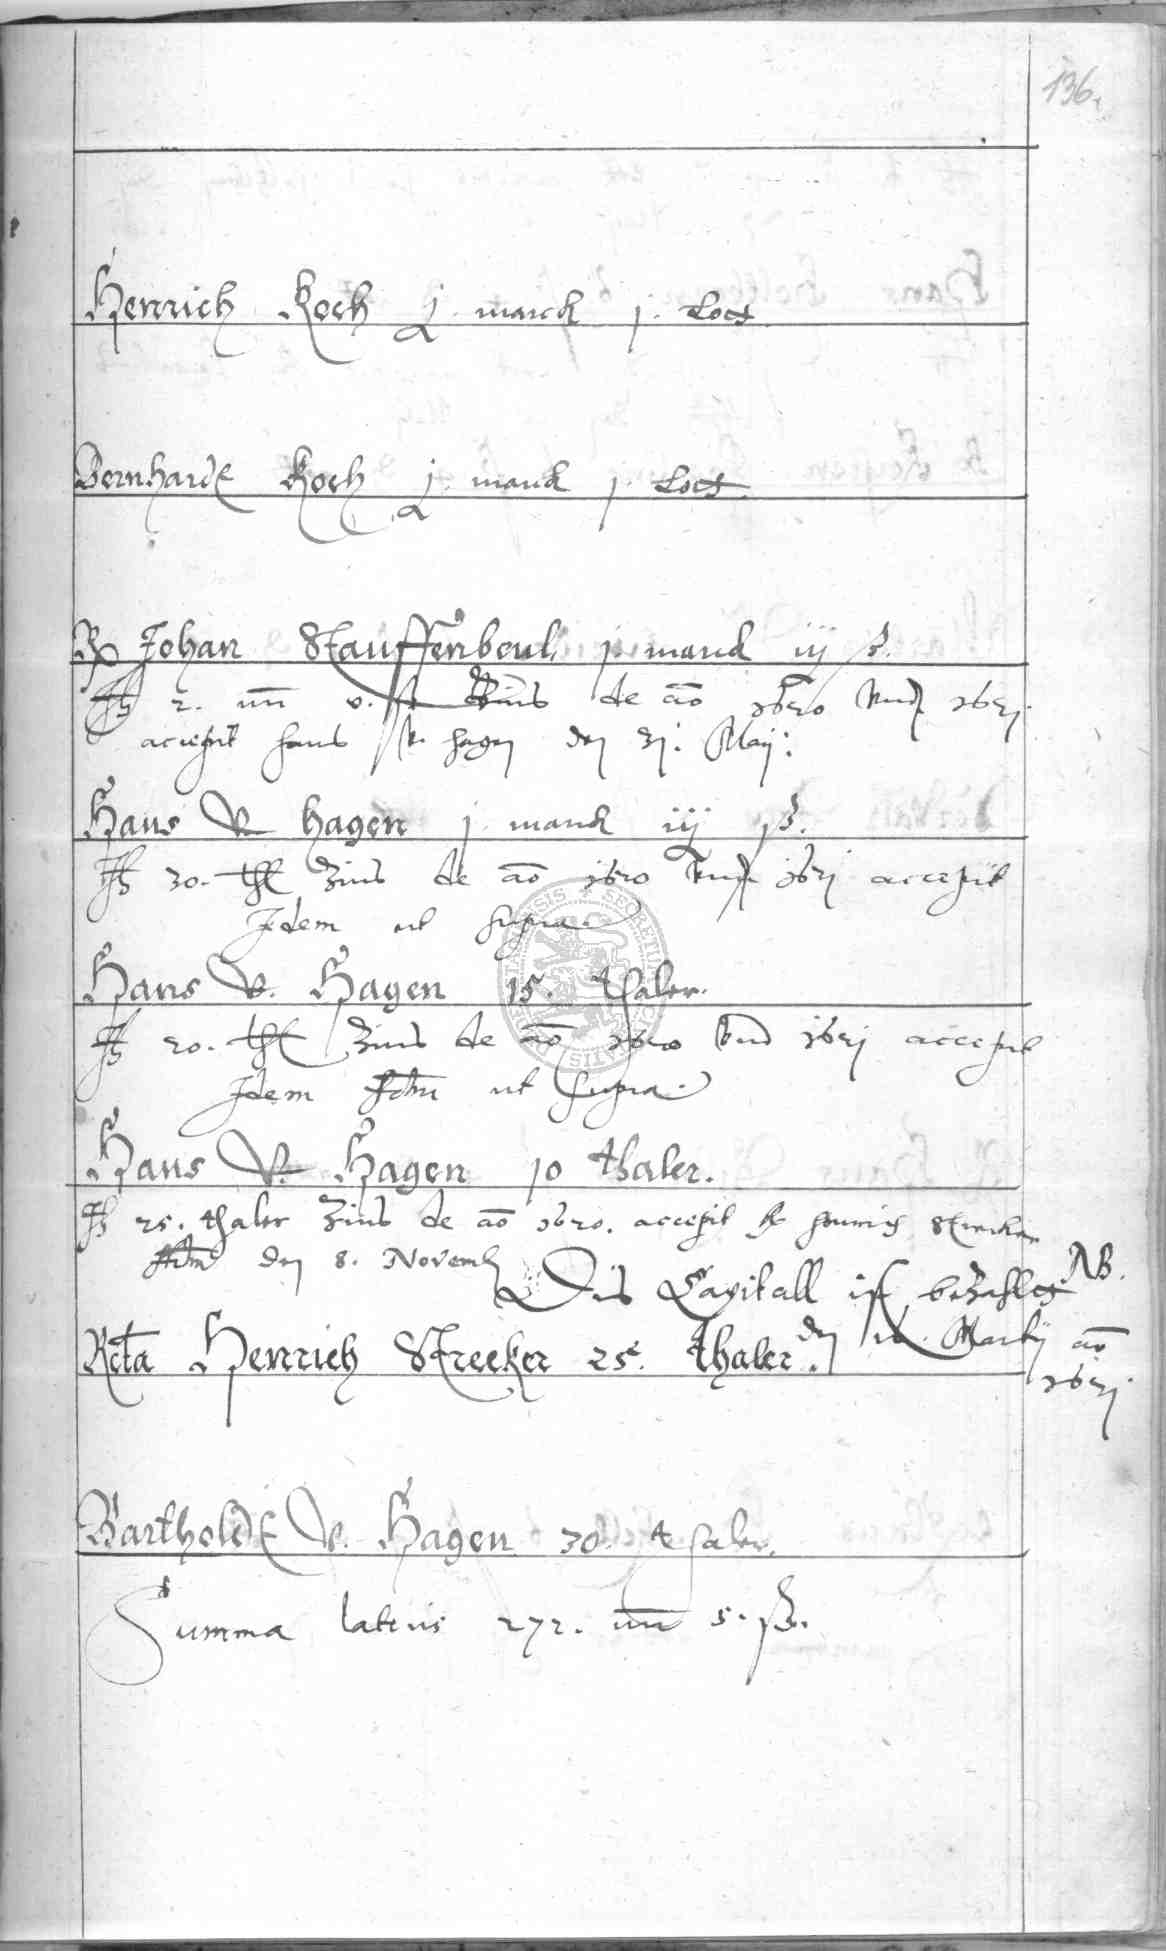 136.
Henrich Koch j. marck j. Lott
Bernhardt Koch j. marck j. Lott
Johan Stauffenbeul j. marck iij ß.
2. mr 6. ß Zins de ao 1620 Vnd 1621.
accepit Hans V. Hagen den 31. Maij.
Hans V. hagen j marck iij ß.
30. thl Zins de ao 1620 Vnd 1621 accepit
Idem ut supra
Hans V. Hagen 15. thaler.
20. thl Zins de ao 1620 Vnd 1621 accepit
Idem ut supra
Hans V. Hagen 10 thaler.
25. thaler Zins de ao 1620. accepit H. Henrich Strecker
den 8. Novemb
NB.
Dis Capitall ist bezahlet
den Martij ao
1621
Rcta Henrich Strecker 25. thaler.
Bartholdt V. Hagen 30. thaler.
Summa lateris 272. mr 5. ß.